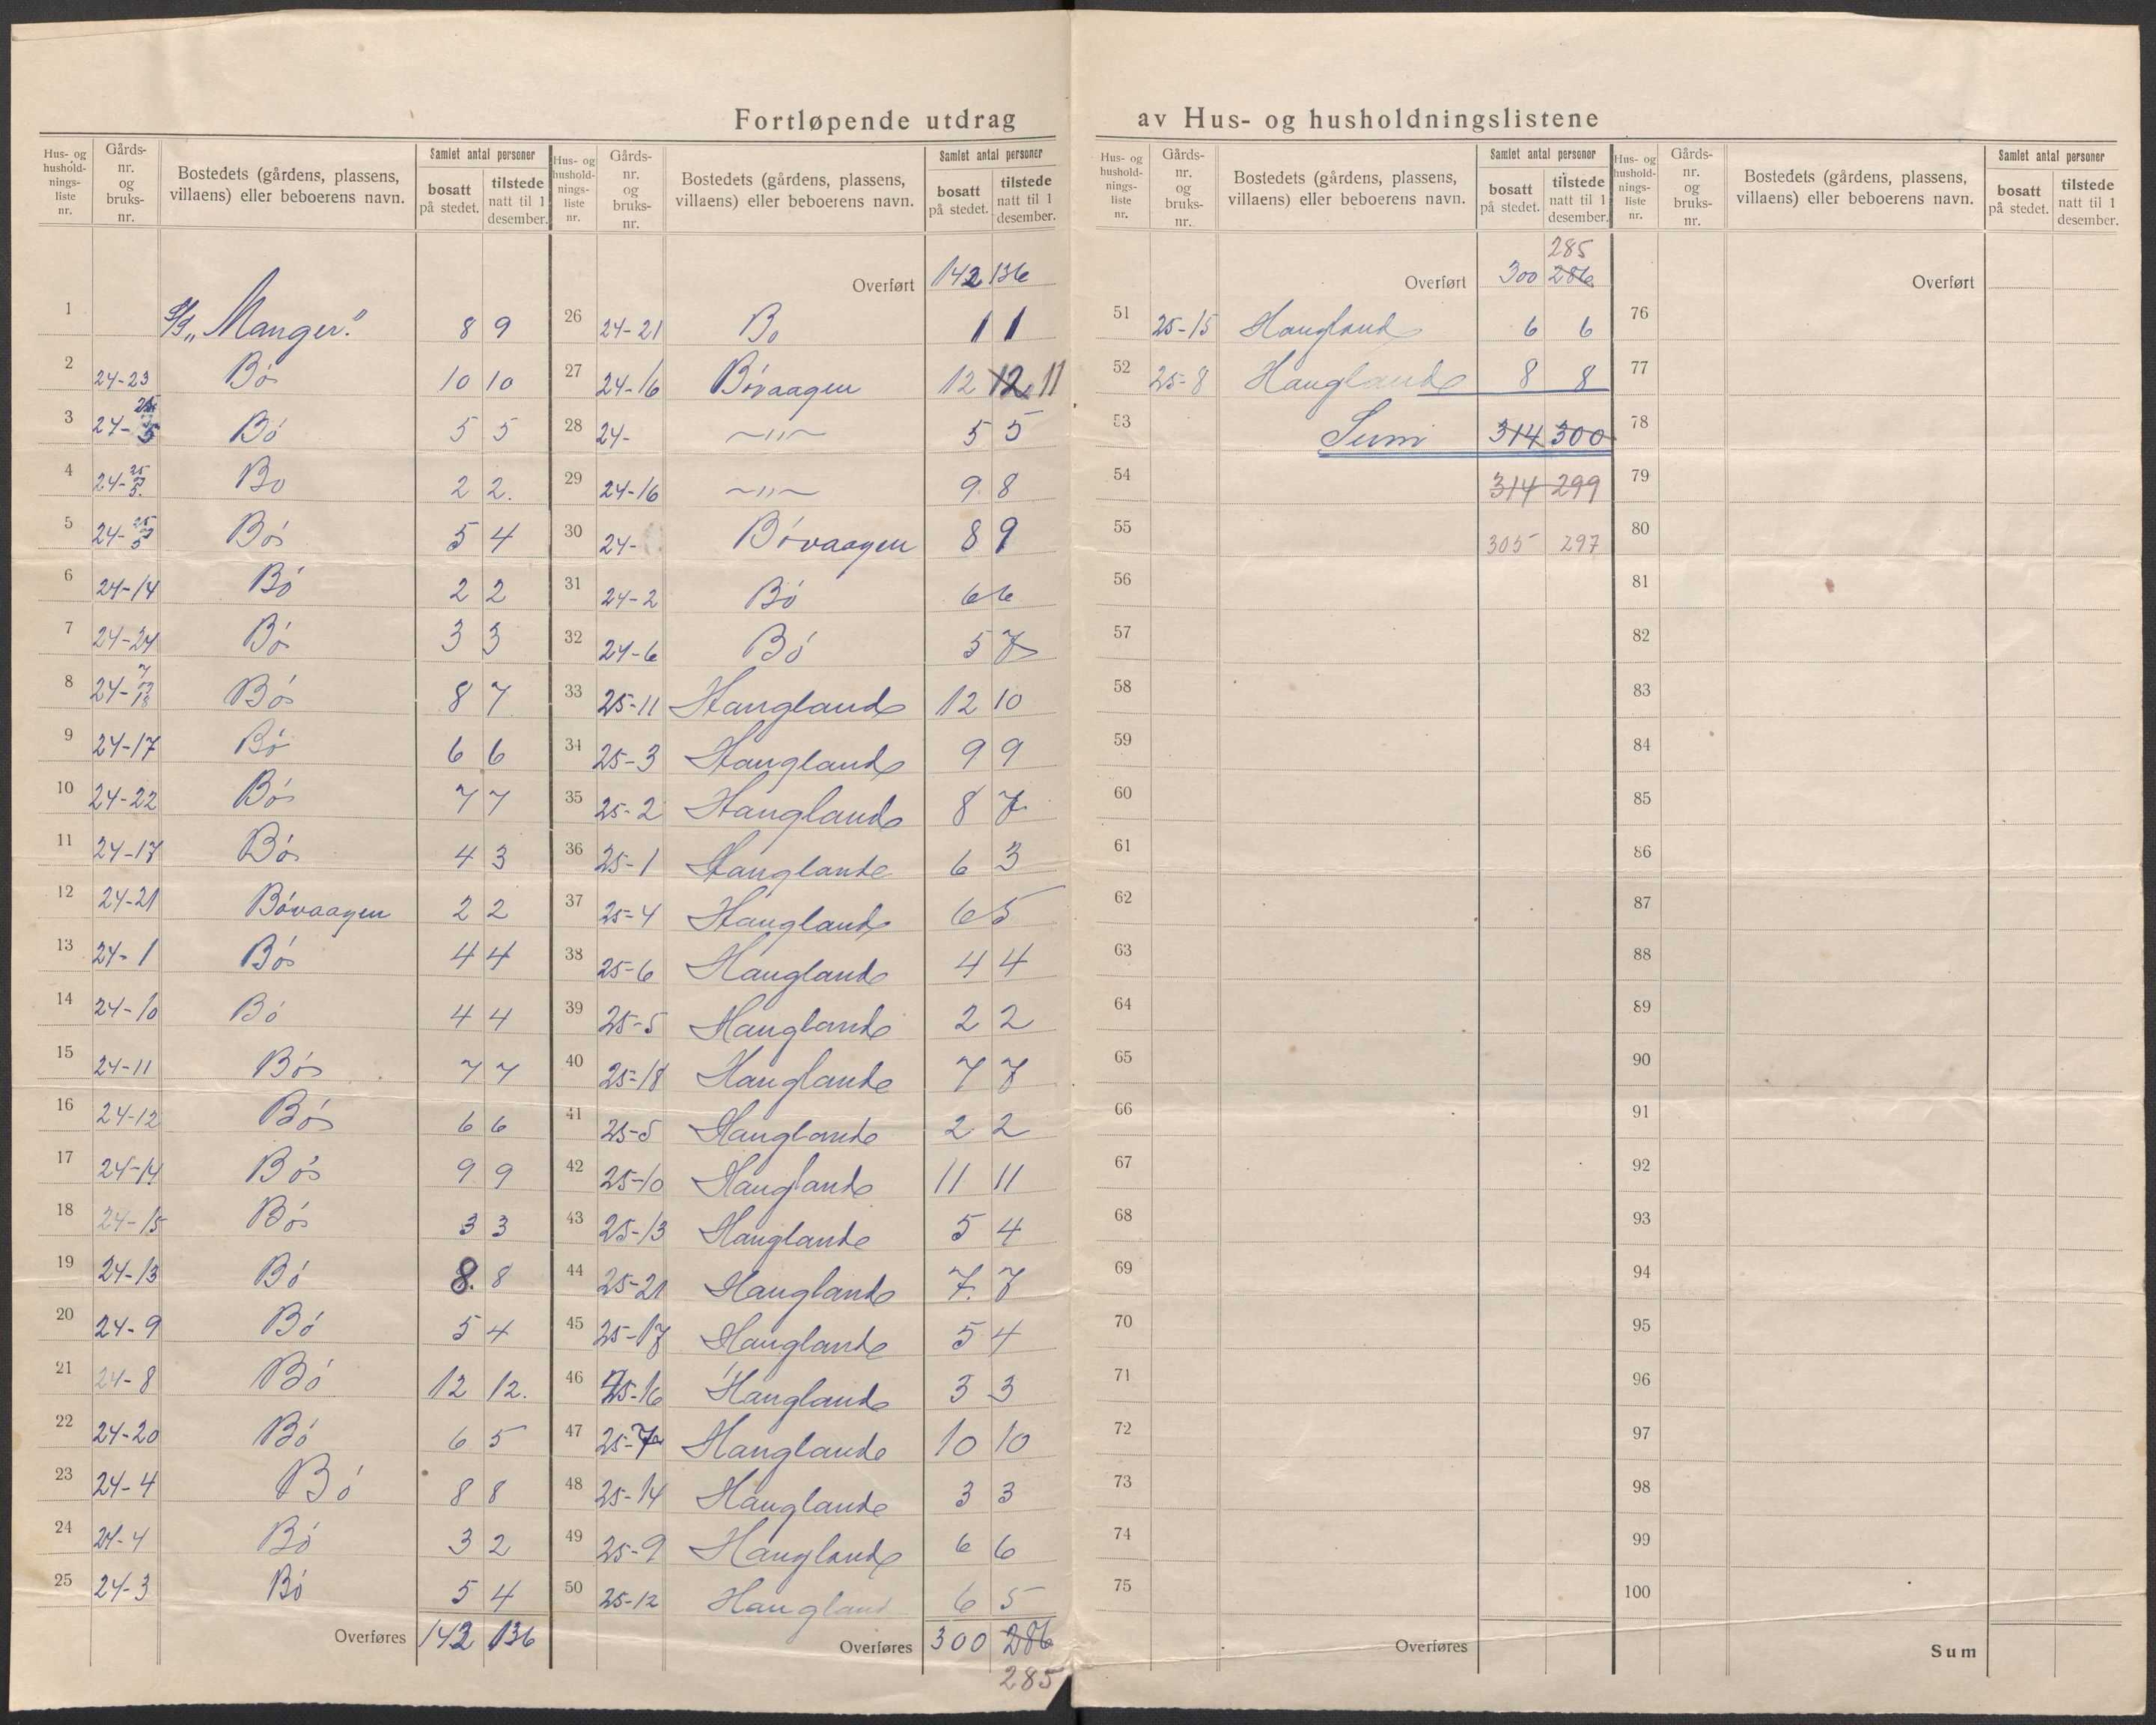 Fortløpende utdrag av Hus- og husholdningslistene
Hus- og hushold-nings-liste nr. Gårds-nr. og bruks-nr. Bostedets (gårdens, plassens, villaens) eller beboerens navn. Samlet antal personer bosatt på stedet. tilstede natt til 1 desember.
1 S/S „Manger." 8 9
2 24-23 Bø 10 10
3 24-25 5 Bø 5 5
4 24-25 5. Bø 2 2.
5 24-25 5 Bø 5 4
6 24-14 Bø 2 2
7 24-24 Bø 3 3
8 24-7 18 Bø 8 7
9 24-17 Bø 6 6
10 24-22 Bø 7 7
11 24-17 Bø 4 3
12 24-21 Bøvaagen 2 2
13 24-1 Bø 4 4
14 24-10 Bø 4 4
15 24-11 Bø 7 7
16 24-12 Bø 6 6
17 24-14 Bø 9 9
18 24-15 Bø 3 3
19 24-13 Bø 8. 8
20 24-9 Bø 5 4
21 24-8 Bø 12 12.
22 24-20 Bø 6 5
23 24-4 Bø 8 8
24 24-4 Bø 3 2
25 24-3 Bø 5 4
Overføres 142 136
Hus- og hushold-nings-liste nr. Gårds-nr. og bruks-nr. Bostedets (gårdens, plassens, villaens) eller beboerens navn. Samlet antal personer bosatt på stedet. tilstede natt til 1 desember.
Overført 142 136
26 24-21 Bø 1 1
27 24-16 Bøvaagen 12 12 11
28 24- —„— 5 5
29 24-16 —„— 9 8
30 24- Bøvaagen 8 9
31 24-2 Bø 6 6
32 24-6 Bø 5 7
33 25-11 Haugland 12 10
34 25-3 Haugland 9 9
35 25-2 Haugland 8 7
36 25-1 Haugland 6 3
37 25-4 Haugland 6 5
38 25-6 Haugland 4 4
39 25-5 Haugland 2 2
40 25-18 Haugland 7 7
41 25-5 Haugland 2 2
42 25-10 Haugland 11 11
43 25-13 Haugland 5 4
44 25-21 Haugland 7. 7
45 25-17 Haugland 5 4
46 25-16 Haugland 3 3
47 25-7 Haugland 10 10
48 25-14 Haugland 3 3
49 25-9 Haugland 6 6
50 25-12 Haugland 6 5
Overføres 300 286
285
Hus- og hushold-nings-liste nr. Gårds-nr. og bruks-nr. Bostedets (gårdens, plassens, villaens) eller beboerens navn. Samlet antal personer bosatt på stedet. tilstede natt til 1 desember.
285
Overført 300 286
51 25-15 Haugland 6 6
52 25-8 Haugland 8 8
53 Sum 314 300
54 314 299
55 305 297
56
57
58
59
60
61
62
63
64
65
66
67
68
69
70
71
72
73
74
75
Overføres
Hus- og hushold-nings-liste nr. Gårds-nr. og bruks-nr. Bostedets (gårdens, plassens, villaens) eller beboerens navn. Samlet antal personer bosatt på stedet. tilstede natt til 1 desember.
Overført
76
77
78
79
80
81
82
83
84
85
86
87
88
89
90
91
92
93
94
95
96
97
98
99
100
Sum